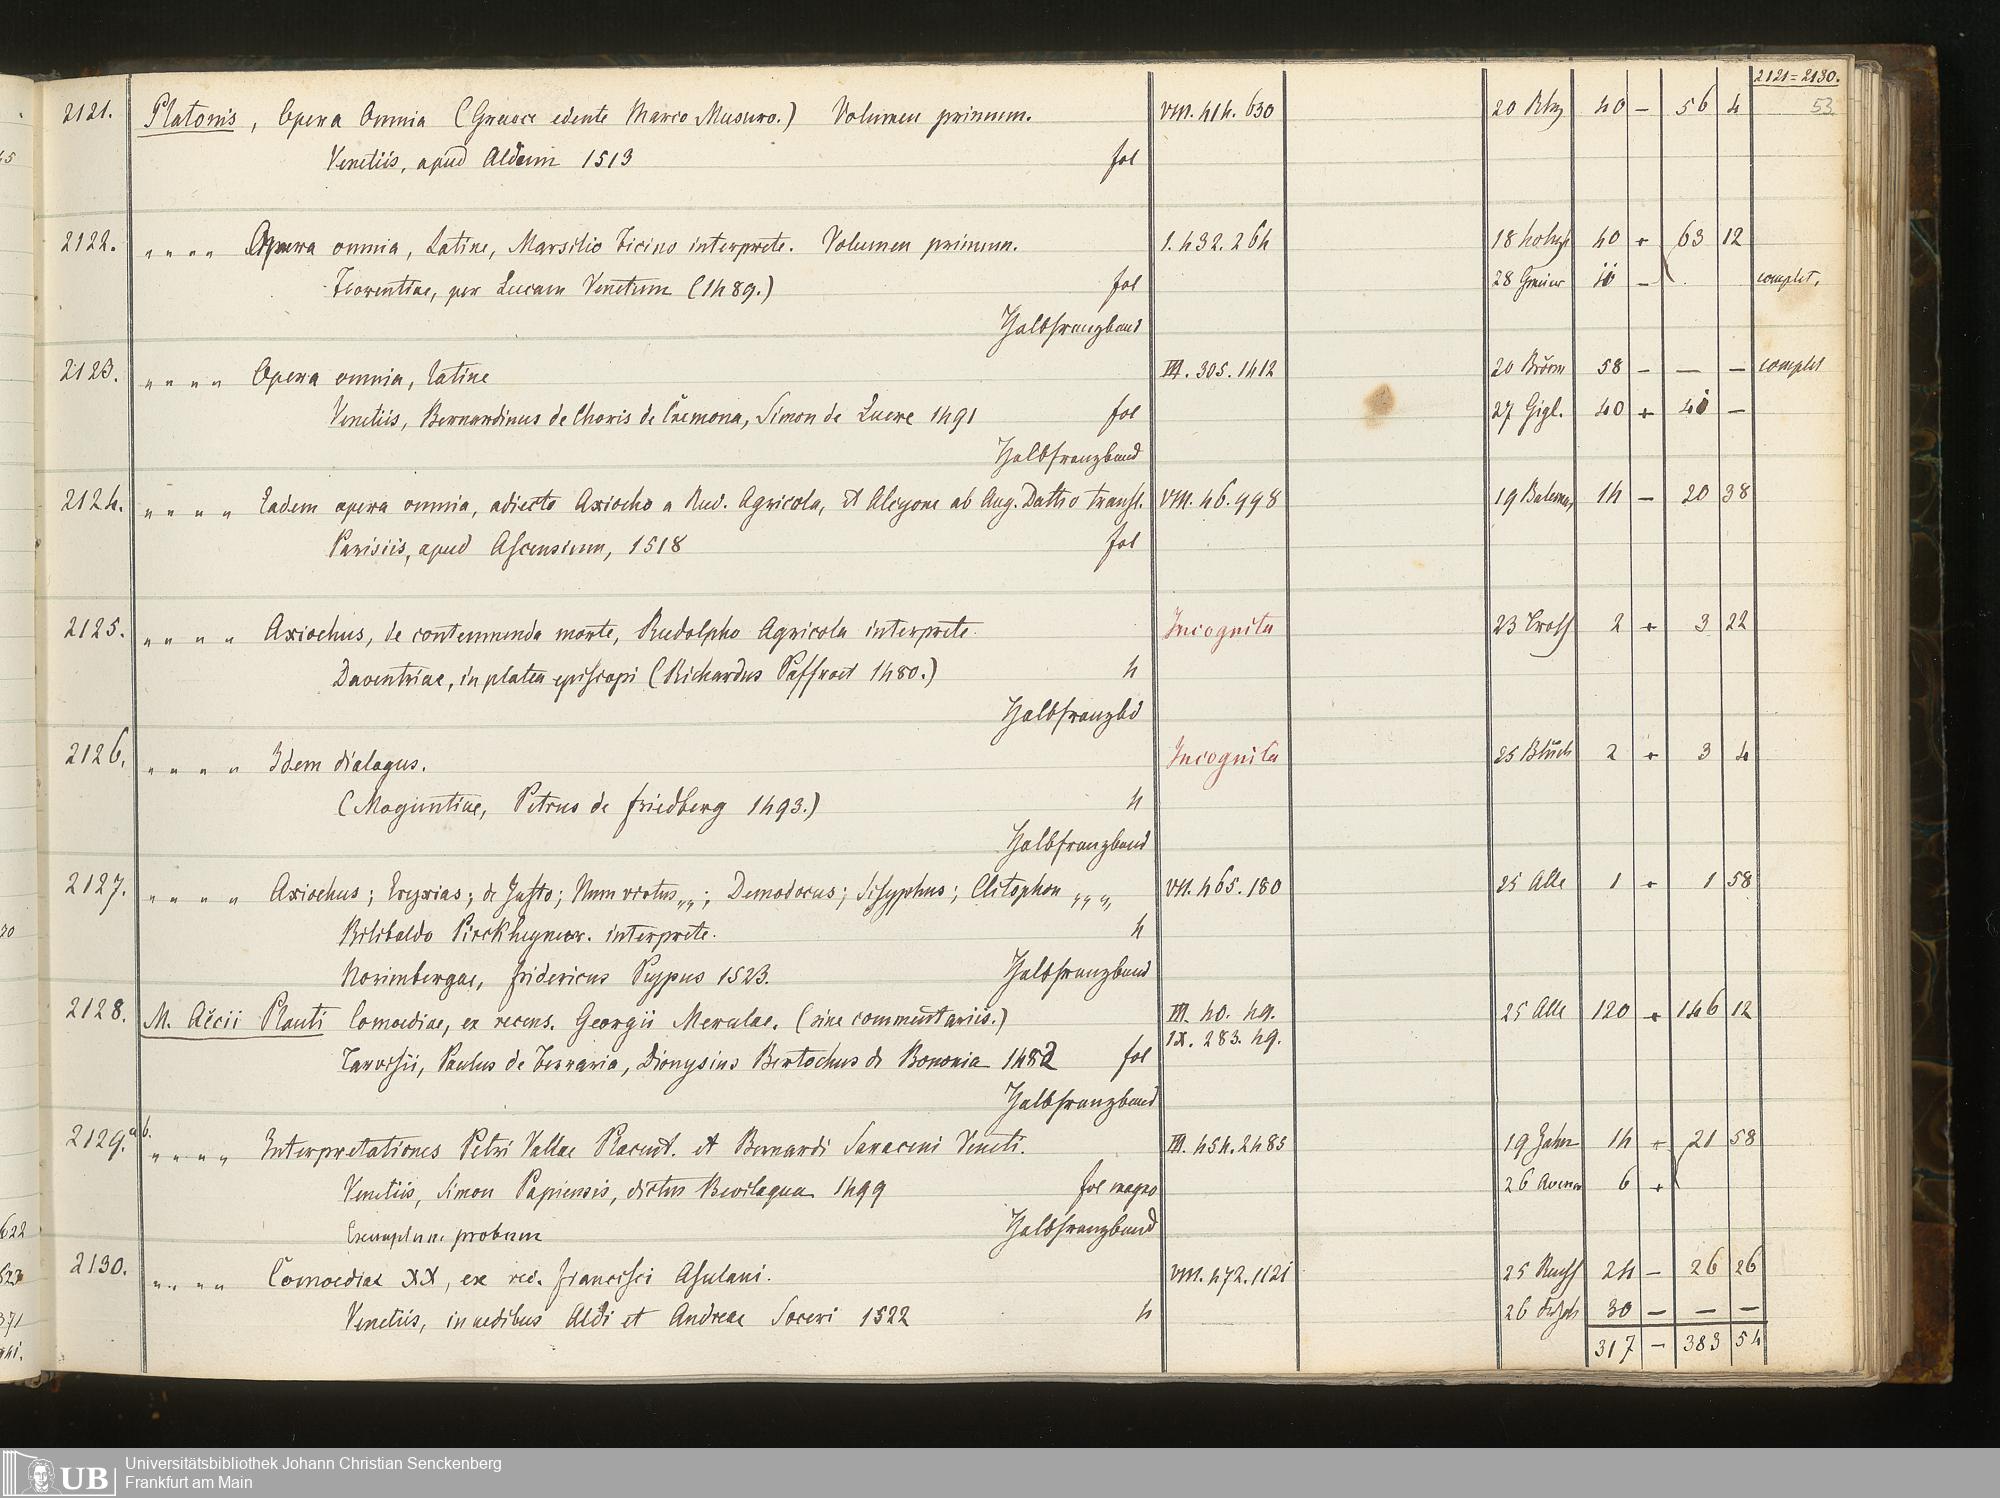 2121=2130.
53
2121. Platonis, Opera Omnia (Graece edente Marco Musuro.) Volumen primum. VIII. 414. 630 20 40 — 56 4
Venetiis, apud Aldum 1513 fol
2122. " " " " Opera omnia, Latine, Marsilio Ficino interprete. Volumen primum. I. 432. 264 18 40 + 63 12
Florentiae, per Lucam Venetum (1489.) fol 28 — complet,
Halbfranzband
2123. " " " " Opera omnia, Latine III. 305. 1412 20 58 — — — complet
Venetiis, Bernardinus de Choris de Cremona, Simon de Luere 1491 fol 27 Gigl. 40 + 40 —
Halbfranzband
2124. " " " " Eadem opera omnia, adiecto Axiocho a Rud. Agricola, et Alcyone ab Aug. Datho transl. VIII. 46. 998 19 14 — 20 38
Parisiis, apud Ascensium, 1518 fol
2125. " " " " Axiochus, de contemnenda morte, Rudolpho Agricola interprete. Incognita 23 2 + 3 22
Daventriae, in platea episcopi (Richardus Paffroet 1480.) 4
Halbfranzbd
2126. " " " " Idem dialogus. Incognita 25 2 + 3 4
(Moguntiae, Petrus de Friedberg 1493.) 4
Halbfranzband
2127. " " " " Axiochus; Eryxias; de Justo; Num virtus „„; Demodocus; Sisyphus; Clitophon „„„ VII. 465. 180 25 Alle 1 + 1 58
Bilibaldo Pirckheymer. interprete. 4
Norimbergae, Fridericus Peypus 1523. Halbfranzband
2128. M. Accii Plauti Comoediae, ex recens. Georgii Merulae. (sine commentariis.) III. 40. 49. 25 Alle 120 + 146 12
IX. 283. 49.
Tarvisii, Paulus de Ferraria, Dionysius Bertochus de Bononia 1482 fol
Halbfranzband
2129. a b. " " " " Interpretationes Petri Vallae Placent. et Bernardi Saraceni Veneti. III. 454. 2485 19 Jahn 14 + 21 58
Venetiis, Simon Papiensis, dictus Bevilaqua 1499 fol magno 26 6 +
Exemplum probum Halbfranzband
2130. " " " " Comoediae XX, ex rec. Francisci Asulani. VIII. 472. 1121 25 24 — 26 26
Venetiis, in aedibus Aldi et Andreae Soceri 1522 4 26 30 — — —
317 — 383 54
Universitätsbibliothek Johann Christian Senckenberg
Frankfurt am Main
UB